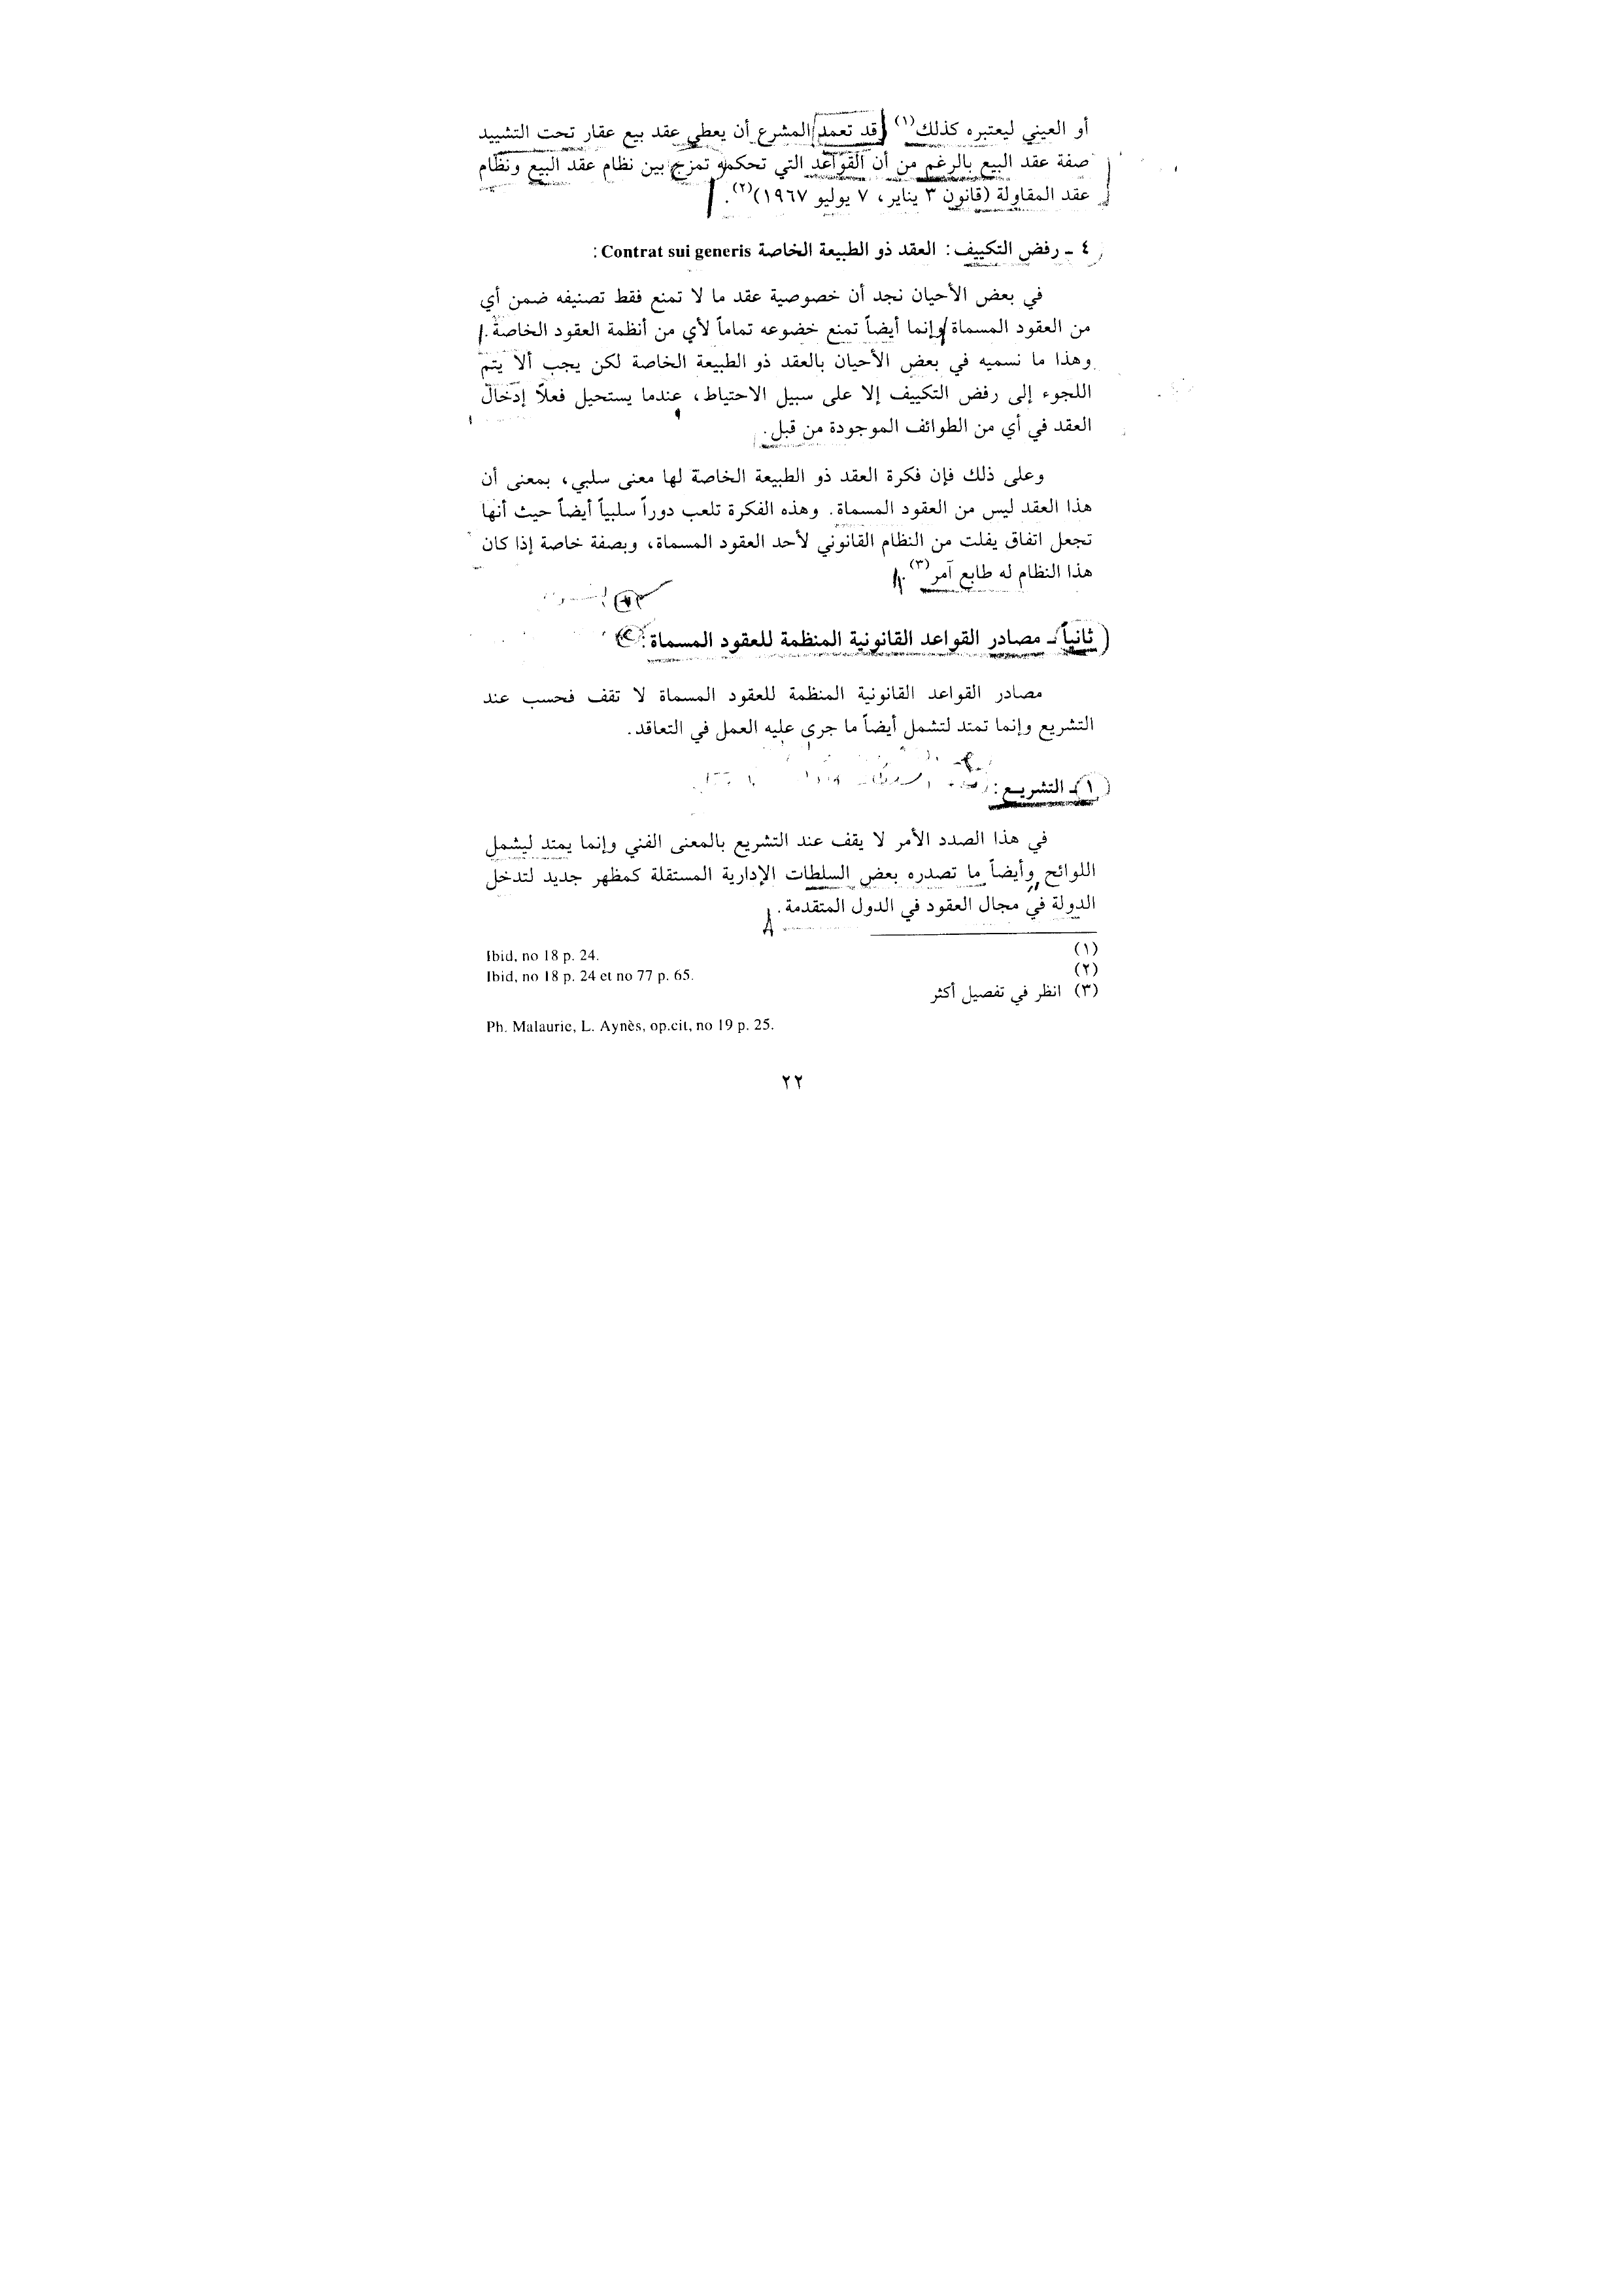 أو العيني ليعتبره كذلك(١) قد تعمد المشرع أن يعطي عقد بيع عقار تحت التشييد
صفة عقد البيع بالرغم من أن القواعد التي تحكمه تمزج بين نظام عقد البيع ونظام
عقد المقاولة (قانون ٣ يناير، ٧ يوليو ١٩٦٧)(٢).
٤ ـ رفض التكييف: العقد ذو الطبيعة الخاصة Contrat sui generis:
في بعض الأحيان نجد أن خصوصية عقد ما لا تمنع فقط تصنيفه ضمن أي
من العقود المسماة وإنما أيضاً تمنع خضوعه تماماً لأي من أنظمة العقود الخاصة.
وهذا ما نسميه في بعض الأحيان بالعقد ذو الطبيعة الخاصة لكن يجب ألا يتم
اللجوء إلى رفض التكييف إلا على سبيل الاحتياط، عندما يستحيل فعلاً إدخال
العقد في أي من الطوائف الموجودة من قبل.
وعلى ذلك فإن فكرة العقد ذو الطبيعة الخاصة لها معنى سلبي، بمعنى أن
هذا العقد ليس من العقود المسماة. وهذه الفكرة تلعب دوراً سلبياً أيضاً حيث أنها
تجعل اتفاق يفلت من النظام القانوني لأحد العقود المسماة، وبصفة خاصة إذا كان
هذا النظام له طابع آمر(٣).
ثانياً ـ مصادر القواعد القانونية المنظمة للعقود المسماة:
مصادر القواعد القانونية المنظمة للعقود المسماة لا تقف فحسب عند
التشريع وإنما تمتد لتشمل أيضاً ما جرى عليه العمل في التعاقد.
١ ـ التشريع:
في هذا الصدد الأمر لا يقف عند التشريع بالمعنى الفني وإنما يمتد ليشمل
اللوائح وأيضاً ما تصدره بعض السلطات الإدارية المستقلة كمظهر جديد لتدخل
الدولة في مجال العقود في الدول المتقدمة.
(١) Ibid, no 18 p. 24.
(٢) Ibid, no 18 p. 24 et no 77 p. 65.
(٣) انظر في تفصيل أكثر
Ph. Malaurie, L. Aynès, op.cit, no 19 p. 25.
٢٢